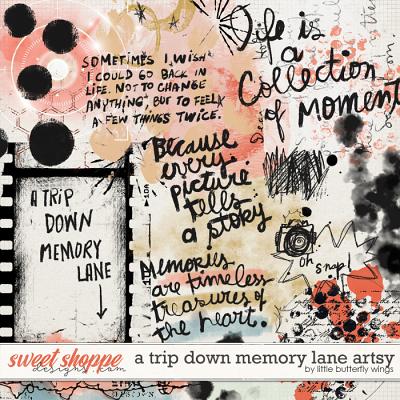 SOMETIMES I WISH
I COULD GO BACK IN
LIFE. NOT TO CHANGE
ANYTHING, BUT TO FEEL
A FEW THINGS TWICE.
Life is
a
Collection
of MOMENT
Because
every
picture
tells
a story
A TRIP
DOWN
MEMORY
LANE
oh
snap!
Memories
are timeless
treasures of
the heart.
sweet shoppe
designs.com
a trip down memory lane artsy
by little butterfly wings